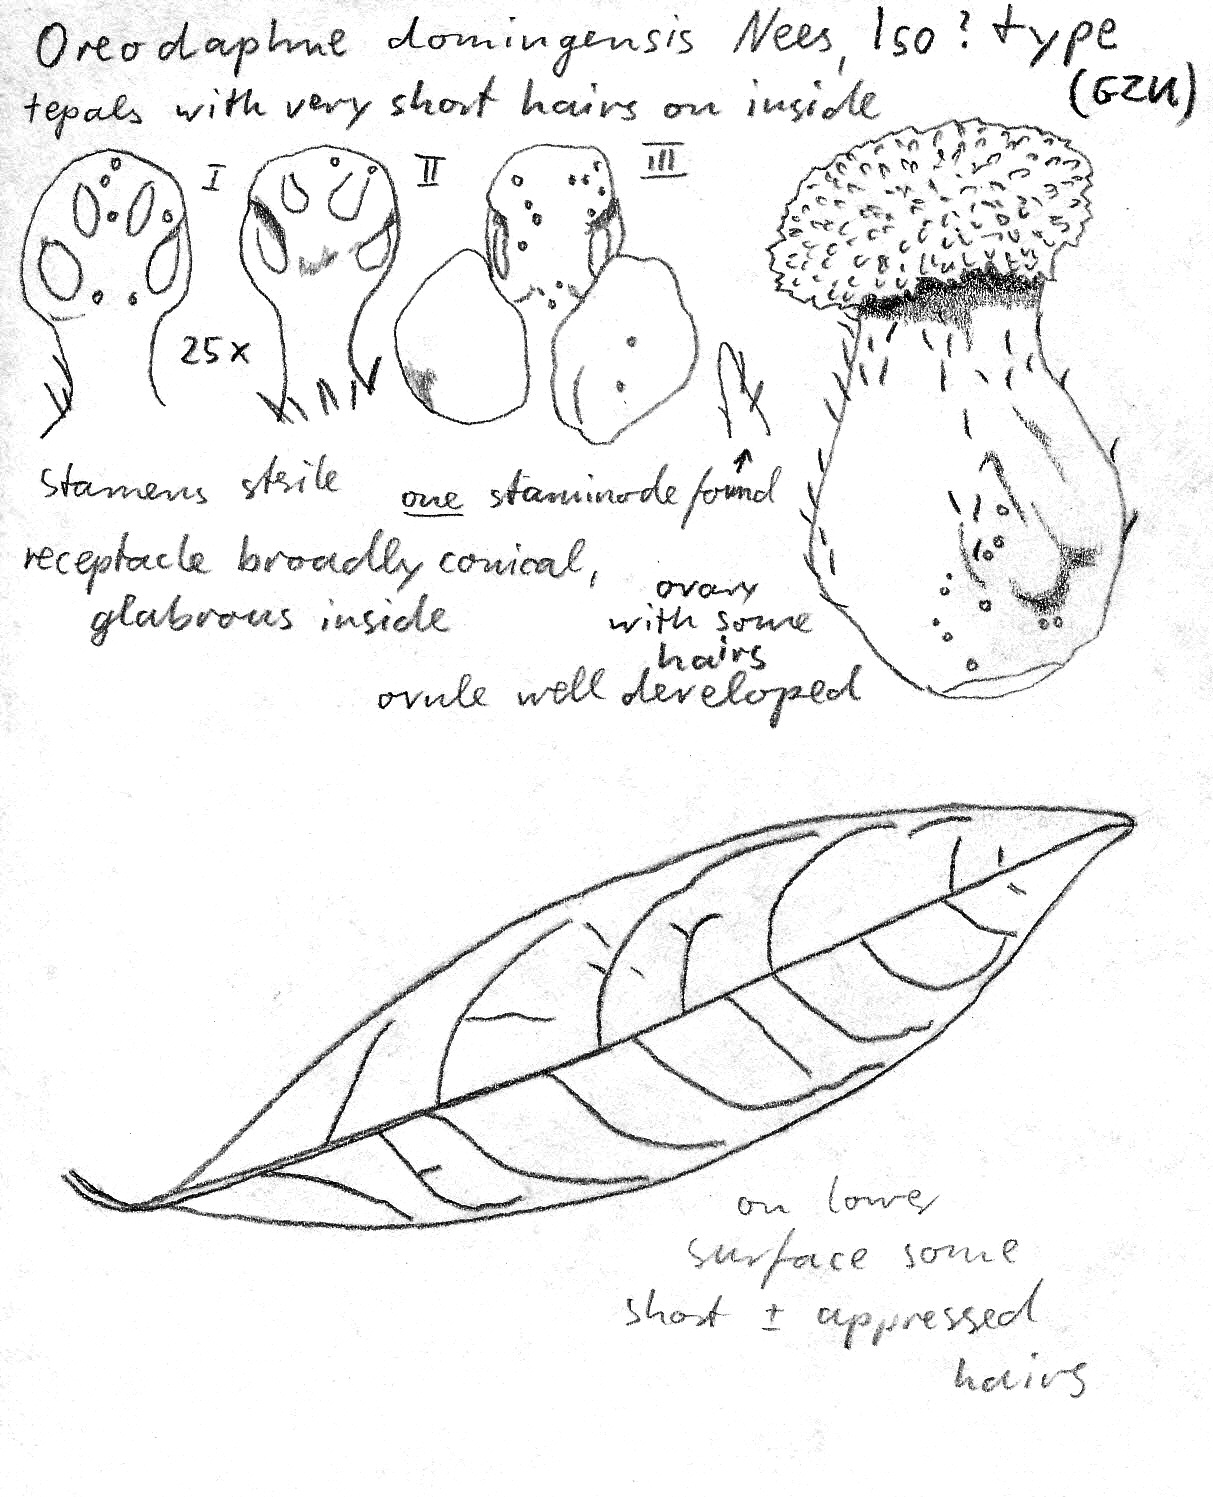 Oreodaphne domingensis Nees, Iso? type
(GZU)
tepals with very short hairs on inside
I II III
25x
stamens sterile one staminode found
receptacle broadly conical,
glabrous inside
ovary
with some
hairs
ovule well developed
on lower
surface some
short ± appressed
hairs